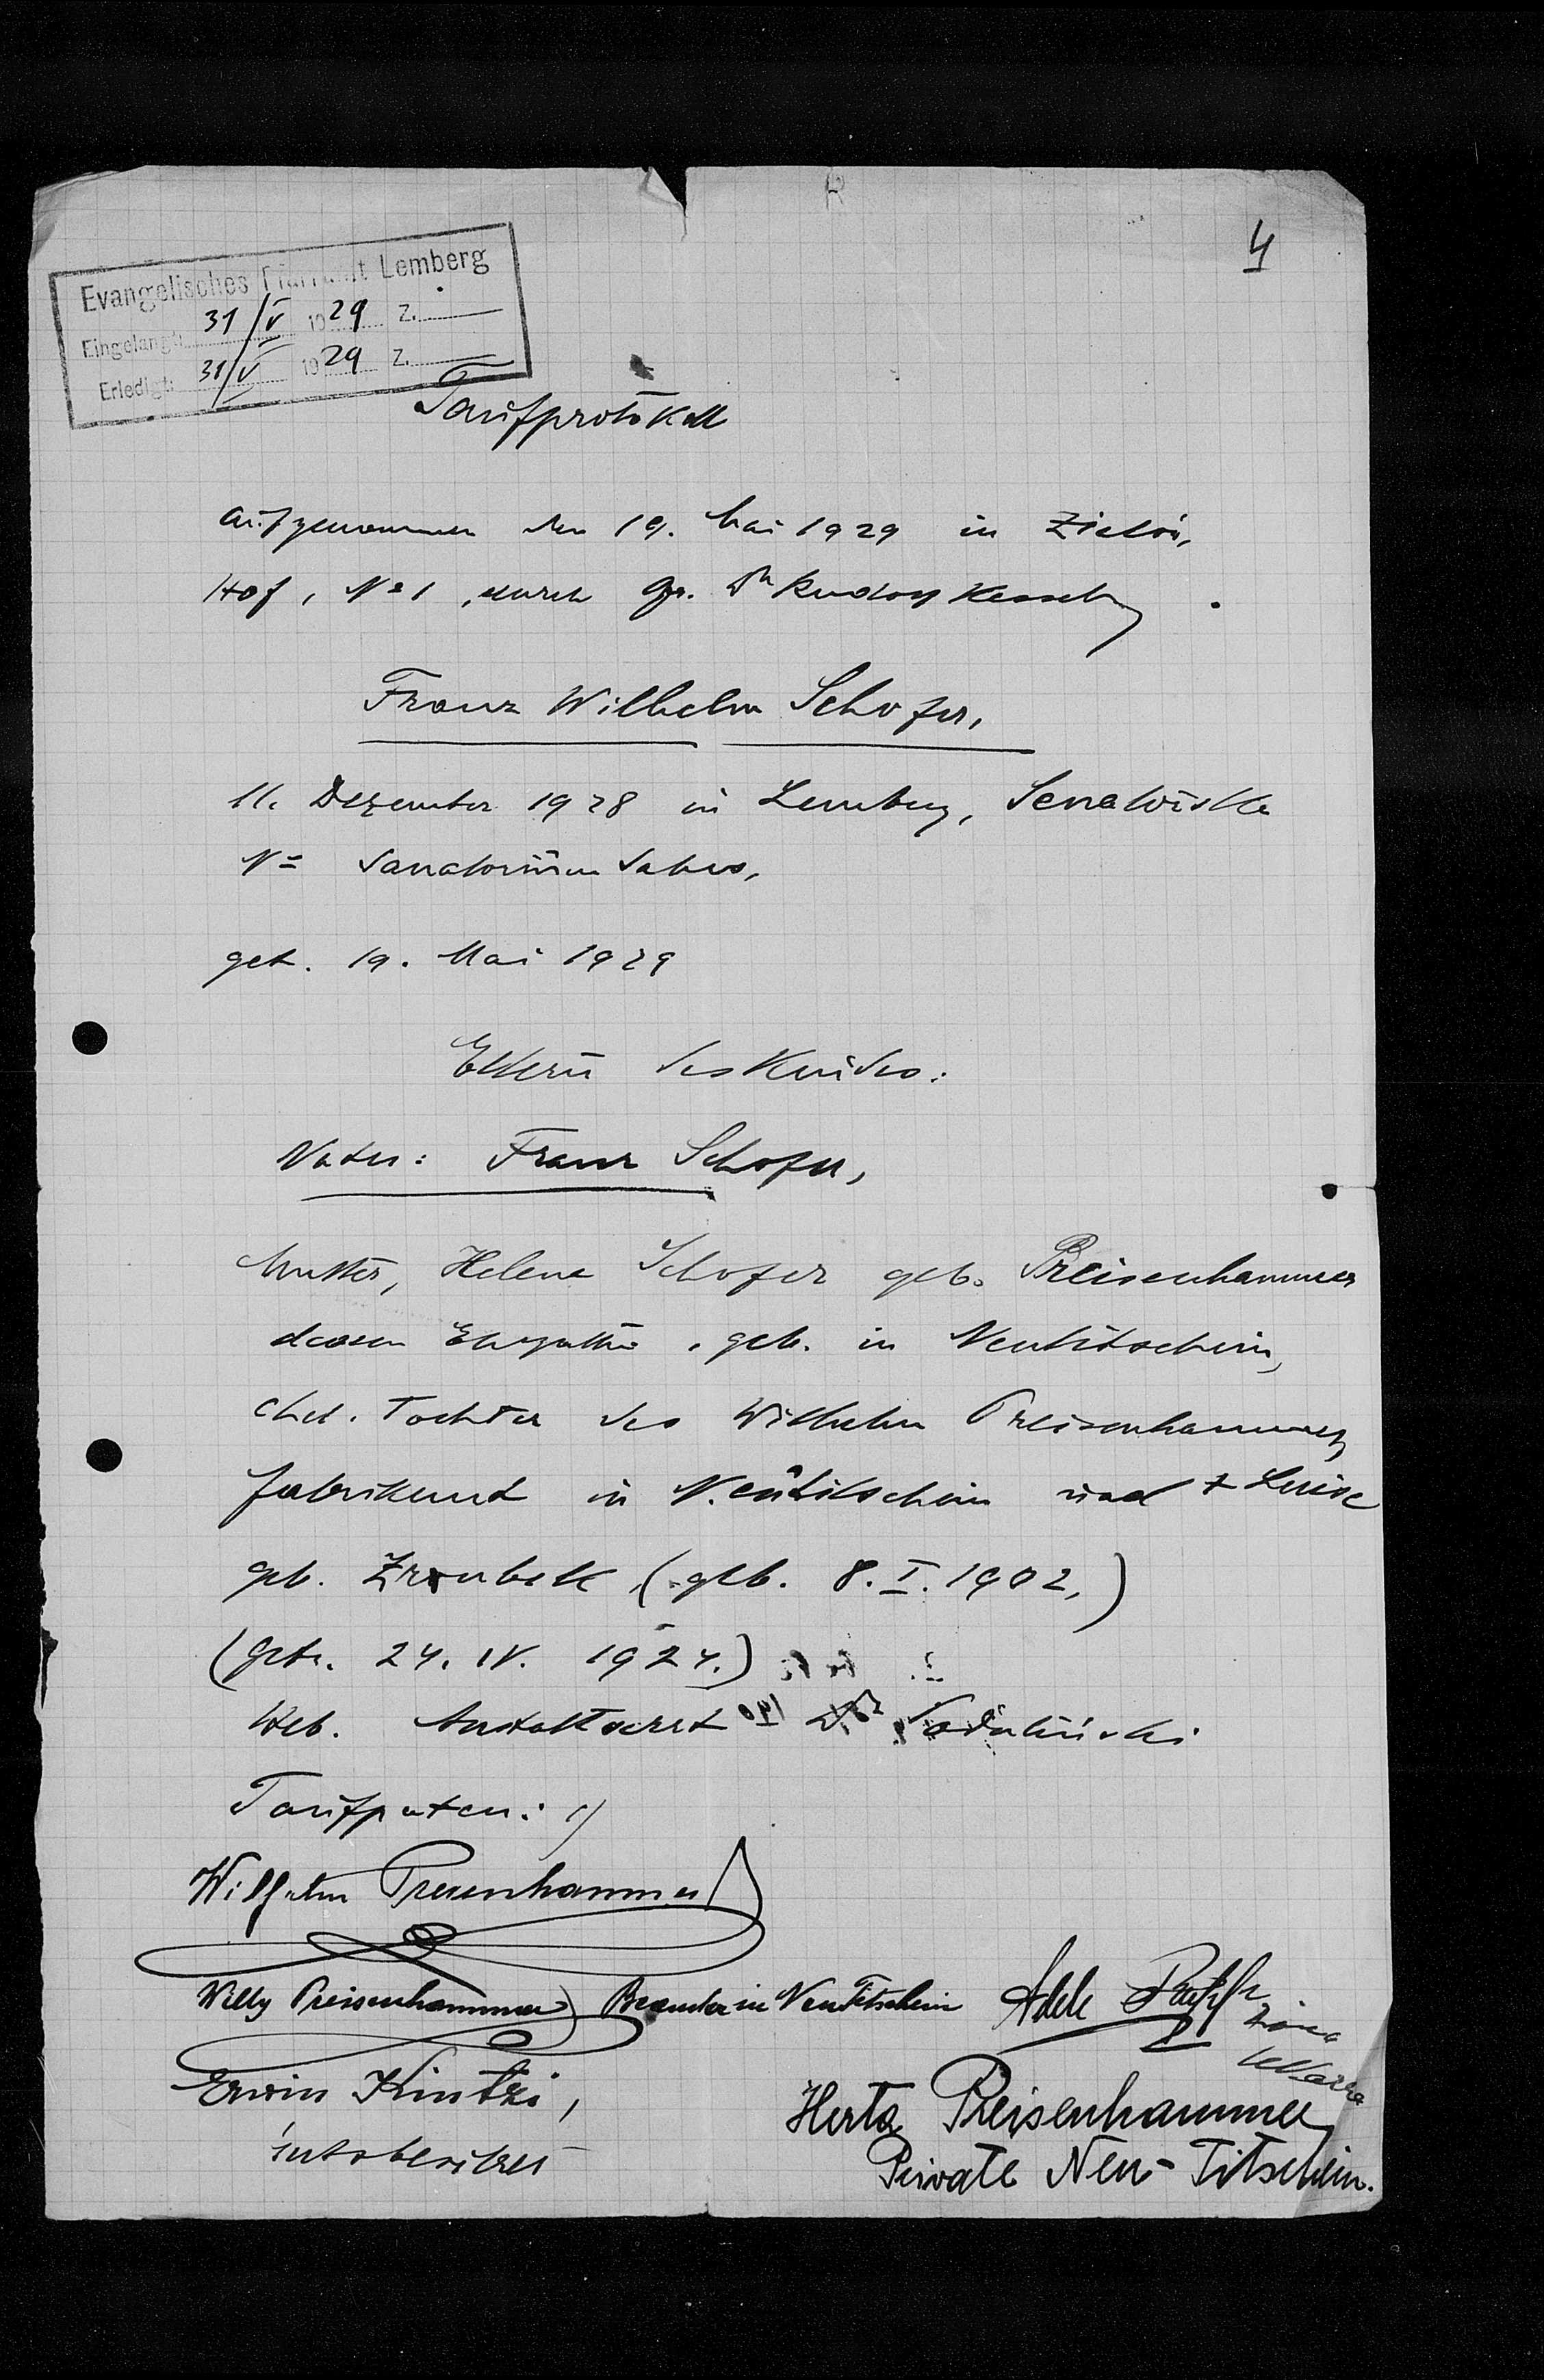 4
Evangelisches Pfarramt Lemberg
Eingelangt: 31/V 1929 Z.
Erledigt: 31/V 1929 Z.
Taufprotokoll
aufgenommen den 19. Mai 1929 in
Hof, No 1, durch Dr Rudolf Kesselring
Franz Wilhelm Schofer,
11. Dezember 1928 in Lemberg,
No Sanatorium Salus,
get. 19. Mai 1929
Eltern des Kindes:
Vater: Franz Schofer,
Mutter, Helene Schofer geb. Preisenhammer
dessen Ehegattin, geb. in Neutitschein,
ehel. Tochter des Wilhelm Preisenhammer,
Fabrikant in Neutitschein und + Luise
geb. (geb. 8. I. 1902,)
(Getr. 24. IV. 1924.)
Heb. Anstaltsarzt Dr
Taufpaten: 1)
Wilhelm Preisenhammer
Willy Preisenhammer Beamter in Neu Titschein Adele
Erwin Kintzi,
Gutsbesitzer
Herta Preisenhammer
Private Neu-Titschein.